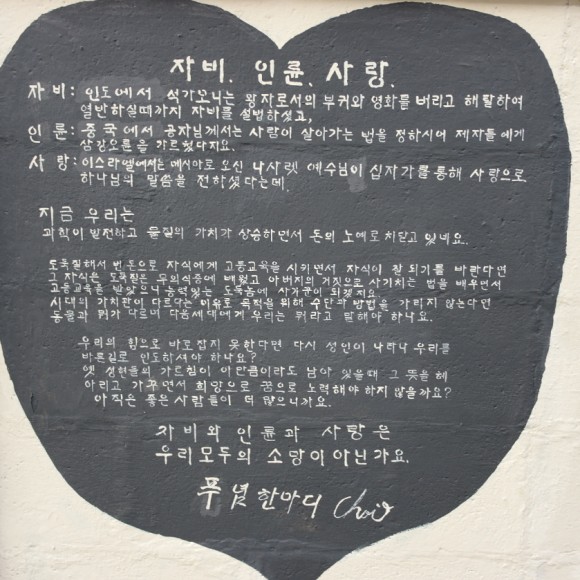 자비. 인륜. 사랑.
자비: 인도에서 석가모니는 왕자로서의 부귀와 영화를 버리고 해탈하여
열반하실때까지 자비를 설법하셨고,
인륜: 중국에서 공자님께서는 사람이 살아가는 법을 정하시어 제자들에게
삼강오륜을 가르쳤다지요.
사랑: 이스라엘에서는 메시아로 오신 나사렛 예수님이 십자가를 통해 사랑으로
하나님의 말씀을 전하셨다는데,
지금 우리는
과학이 발전하고 물질의 가치가 상승하면서 돈의 노예로 치닫고 있네요.
도둑질해서 번돈으로 자식에게 고등교육을 시키면서 자식이 잘 되기를 바란다면
그 자식은 도둑질을 무의식중에 배웠고 아버지의 거짓으로 사기치는 법을 배우면서
고등교육을 받았으니 능력있는 도둑놈에 사기꾼이 되겠지요
시대의 가치관이 다르다는 이유로 목적을 위해 수단과 방법을 가리지 않는다면
동물과 뭐가 다르며 다음세대에게 우리는 뭐라고 말해야 하나요.
우리의 힘으로 바로잡지 못한다면 다시 성인이 나타나 우리를
바른길로 인도하셔야 하나요?
옛 성현들의 가르침이 아만큼이라도 남아 있을때 그 뜻을 헤
아리고 가꾸면서 희망으로 꿈으로 노력해야 하지 않을까요?
아직은 좋은 사람들이 더 많으니까요.
자비와 인륜과 사랑은
우리모두의 소망이 아닌가요.
푸념 한마디 Choi